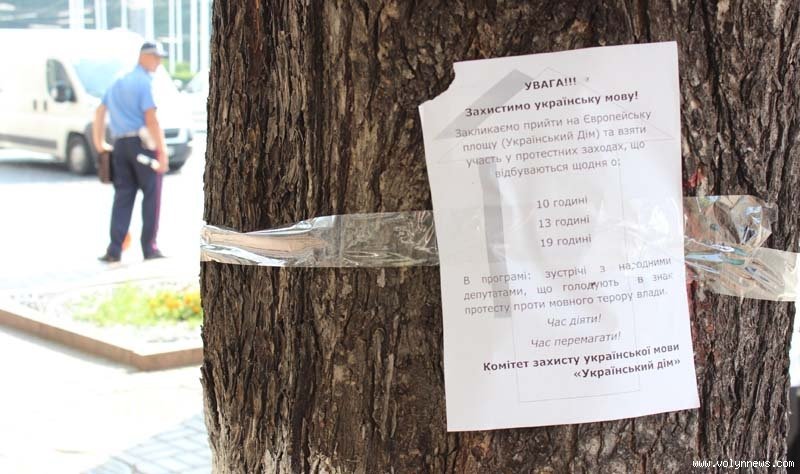 УВАГА!!!
Захистимо українську мову!
Закликаємо прийти на Європейську
площу (Український Дім) та взяти
участь у протестних заходах, що
відбуваються щодня о:
10 годині
13 годині
19 годині
В програмі: зустрічі з народними
депутатами, що голодують в знак
протесту проти мовного терору влади.
Час діяти!
Час перемагати!
Комітет захисту української мови
«Український дім»
www.volynnews.com